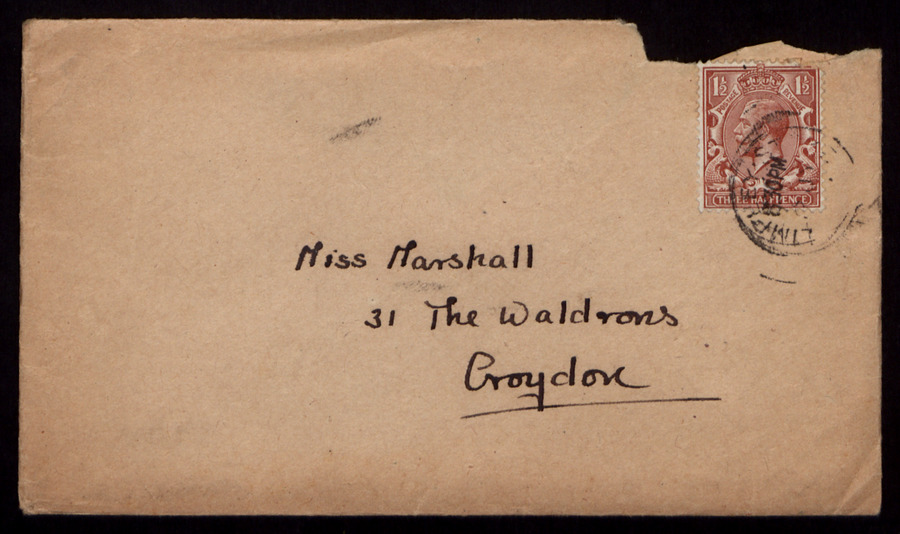 1½ 1½
THREE HALFPENCE
30PM
Miss Marshall
31 The Waldrons
Croydon